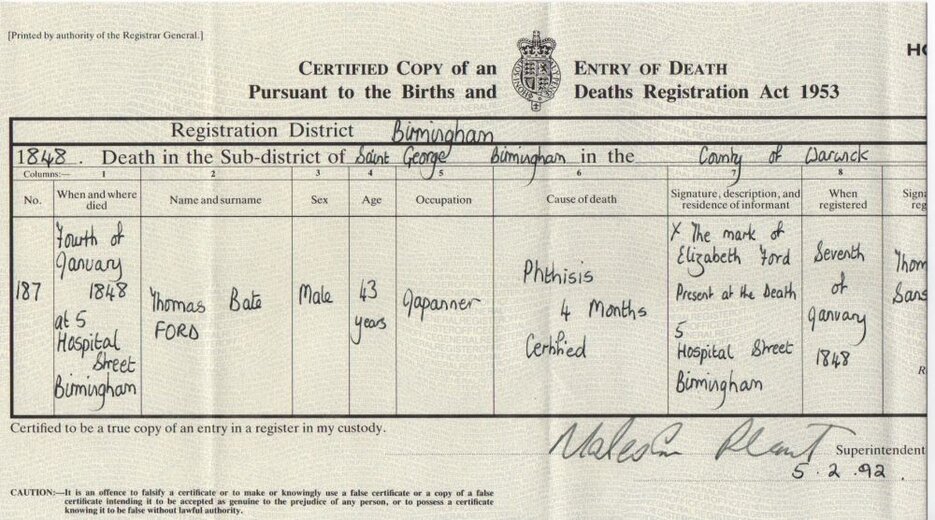 [Printed by authority of the Registrar General.]
HO
CERTIFIED COPY of an ENTRY OF DEATH
Pursuant to the Births and Deaths Registration Act 1953
Registration District Birmingham
1848. Death in the Sub-district of Saint George Birmingham in the County of Warwick
Columns:— 1 2 3 4 5 6 7 8
No. When and where died Name and surname Sex Age Occupation Cause of death Signature, description, and residence of informant When registered Signa
reg
187 Fourth of January 1848 at 5 Hospital Street Birmingham Thomas Bate FORD Male 43 years Japanner Phthisis 4 Months Certified X The mark of Elizabeth Ford Present at the Death 5 Hospital Street Birmingham Seventh of January 1848 Thom
Sans
R
Certified to be a true copy of an entry in a register in my custody.
Malcolm Plant Superintendent
5.2.92.
CAUTION:—It is an offence to falsify a certificate or to make or knowingly use a false certificate or a copy of a false
certificate intending it to be accepted as genuine to the prejudice of any person, or to possess a certificate
knowing it to be false without lawful authority.